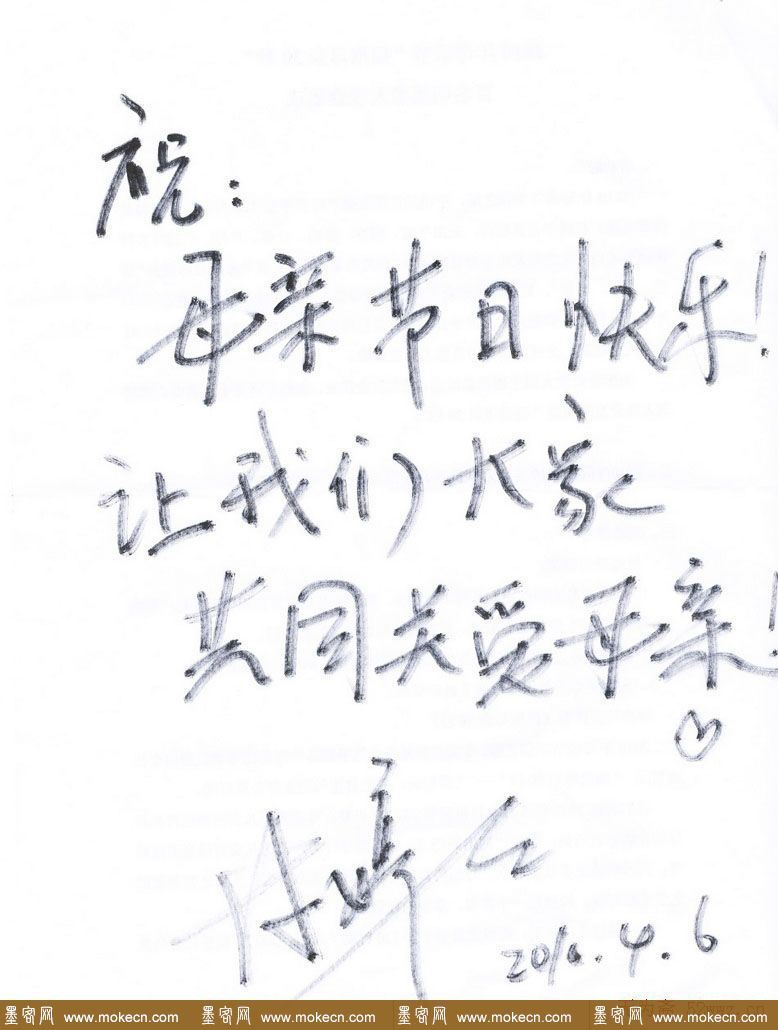 祝：
母亲节日快乐！
让我们大家
共同关爱母亲！
2010.4.6
墨客网 www.mokecn.com 墨客网 www.mokecn.com 墨客网 www.mokecn.com 墨客网 www.mokecn.com